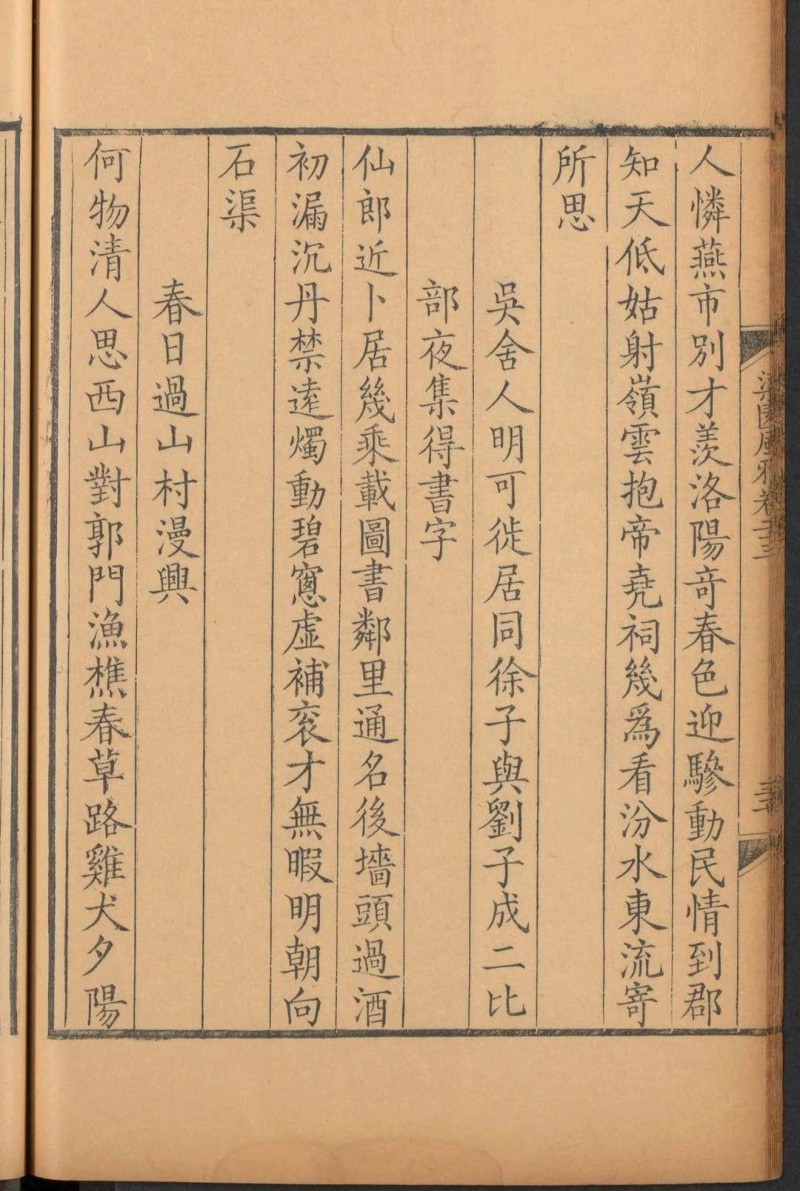 人憐燕市別才羨洛陽奇春色迎驂動民情到郡
知天低姑射嶺雲抱帝堯祠幾為看汾水東流寄
所思
吳舍人明可徙居同徐子與劉子成二比
部夜集得書字
仙郎近卜居幾乘載圖書鄰里通名後墻頭過酒
初漏沉丹禁遠燭動碧窓虛補袞才無暇明朝向
石渠
春日過山村漫興
何物清人思西山對郭門漁樵春草路雞犬夕陽
梁園風雅卷